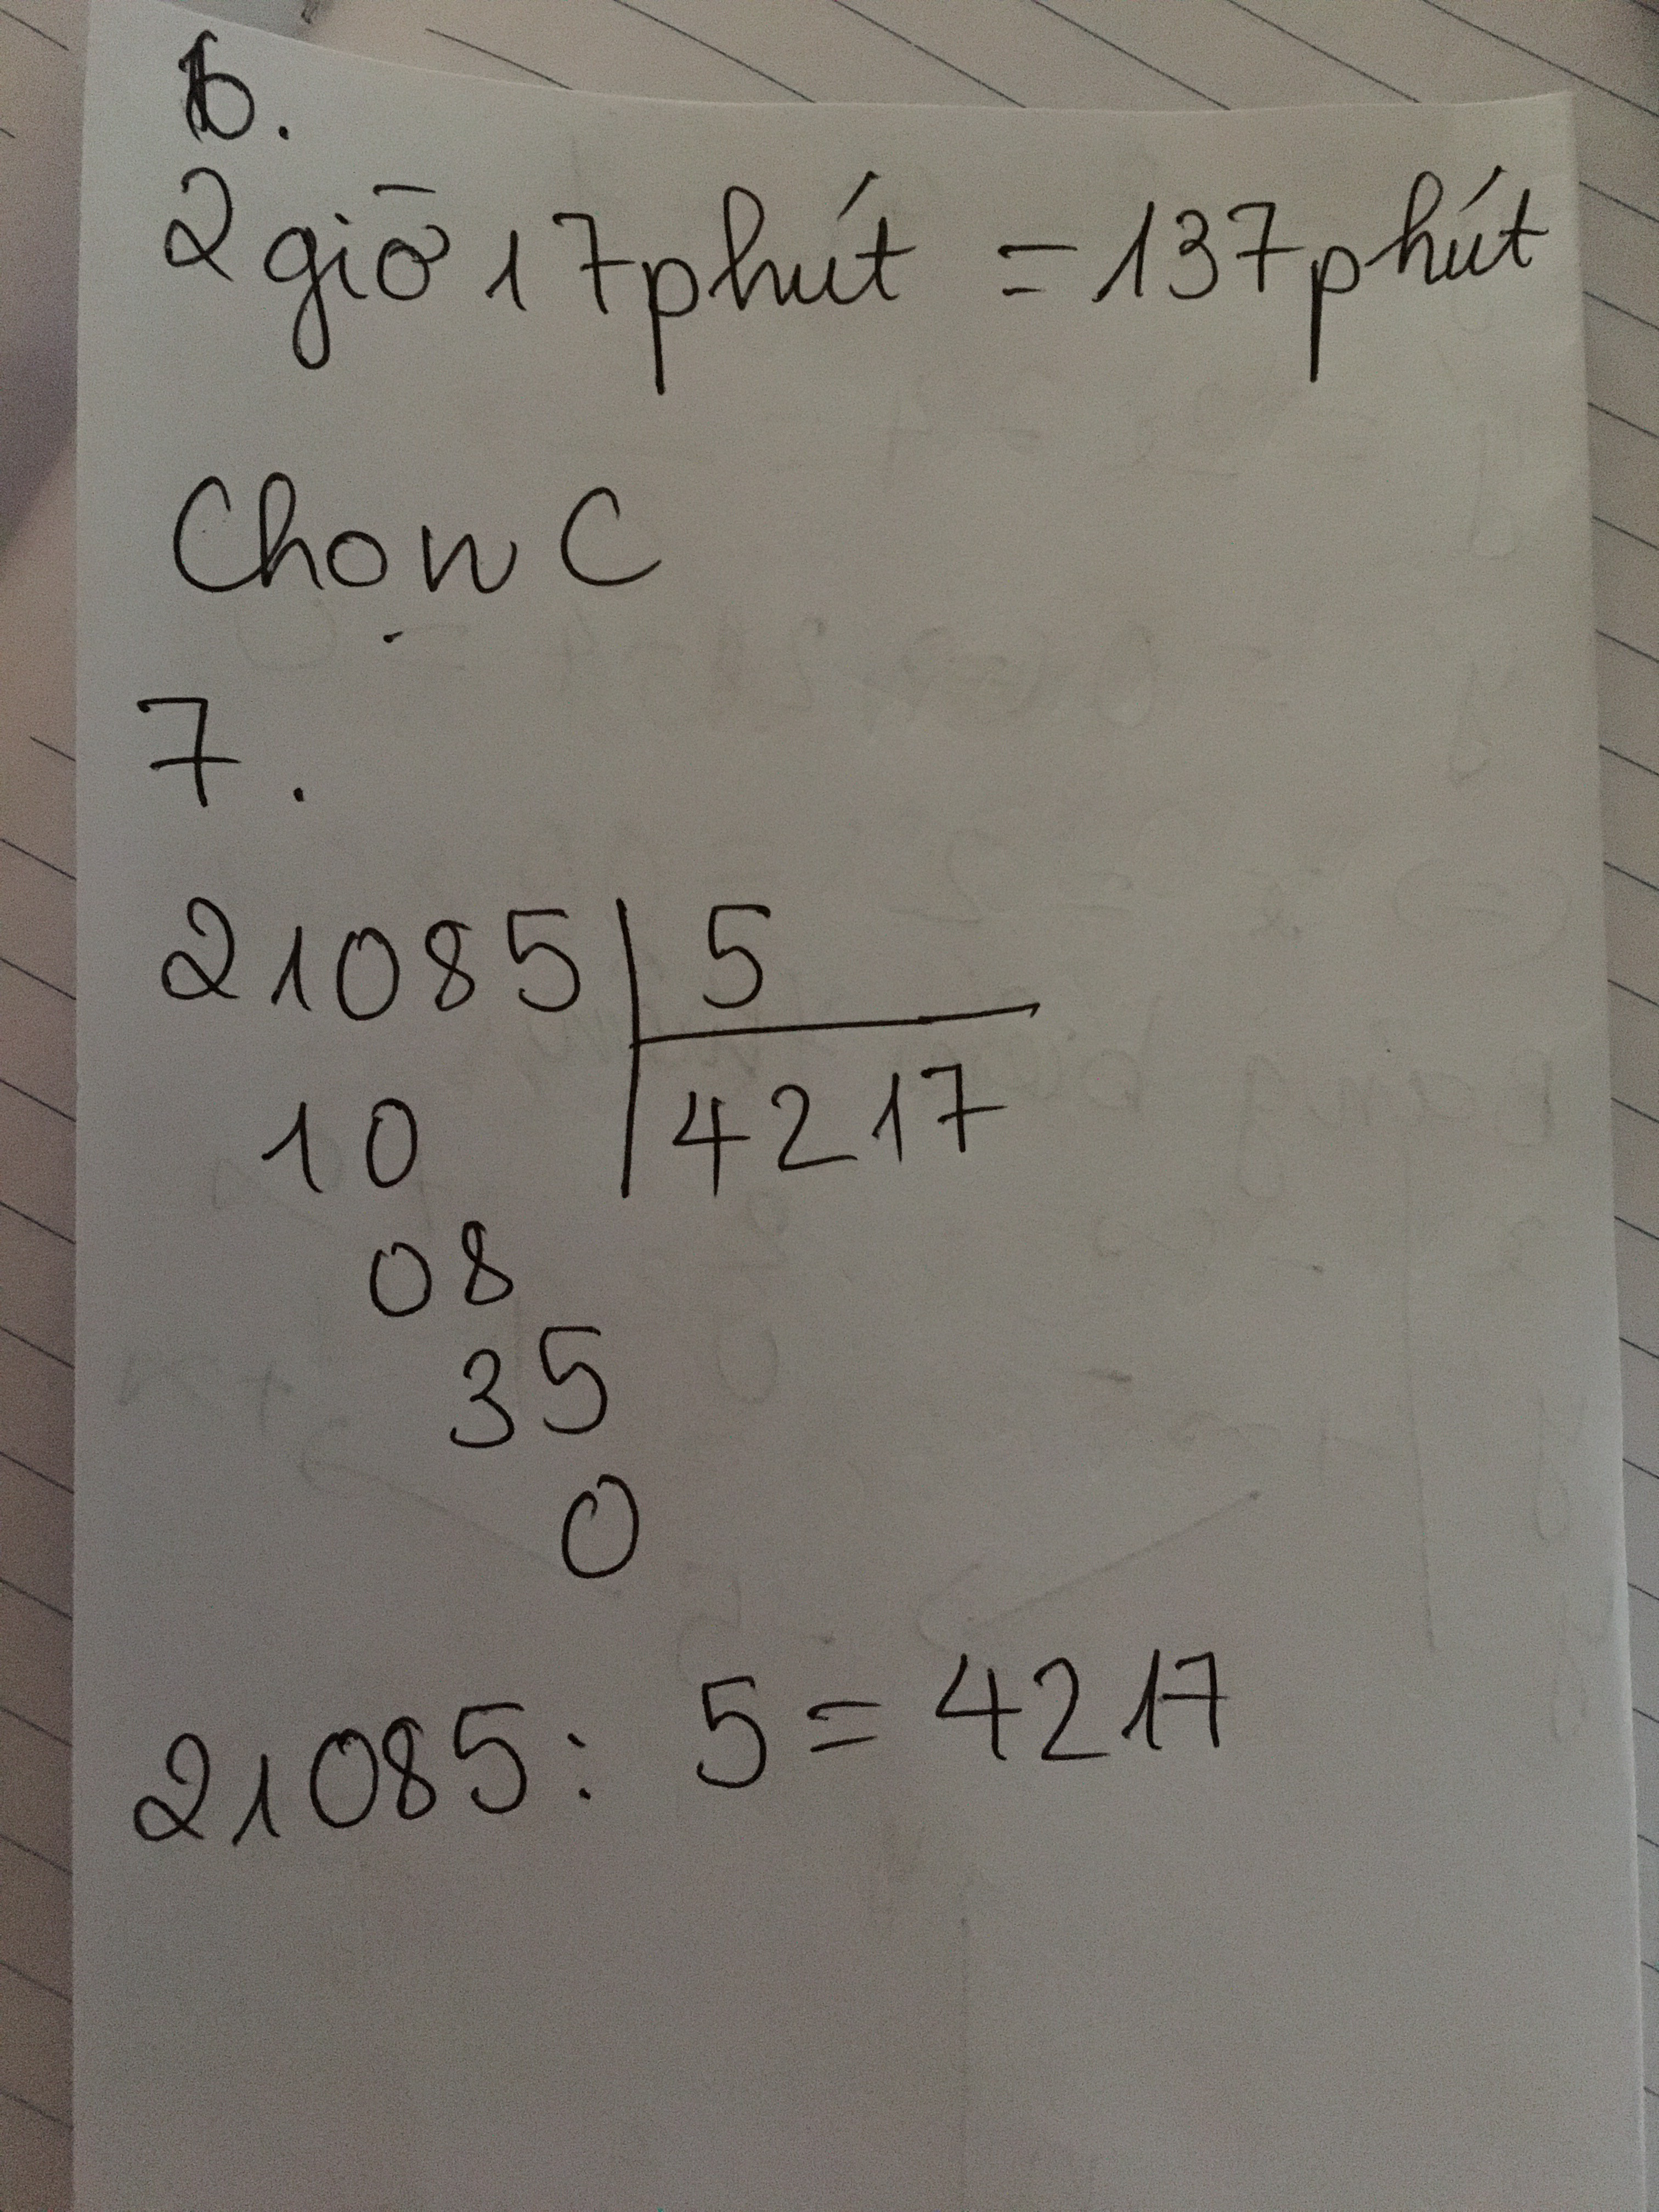 6.
2 giờ 17 phút = 137 phút
Chọn C
7.
21085 5
10 4217
08
35
0
21085 : 5 = 4217